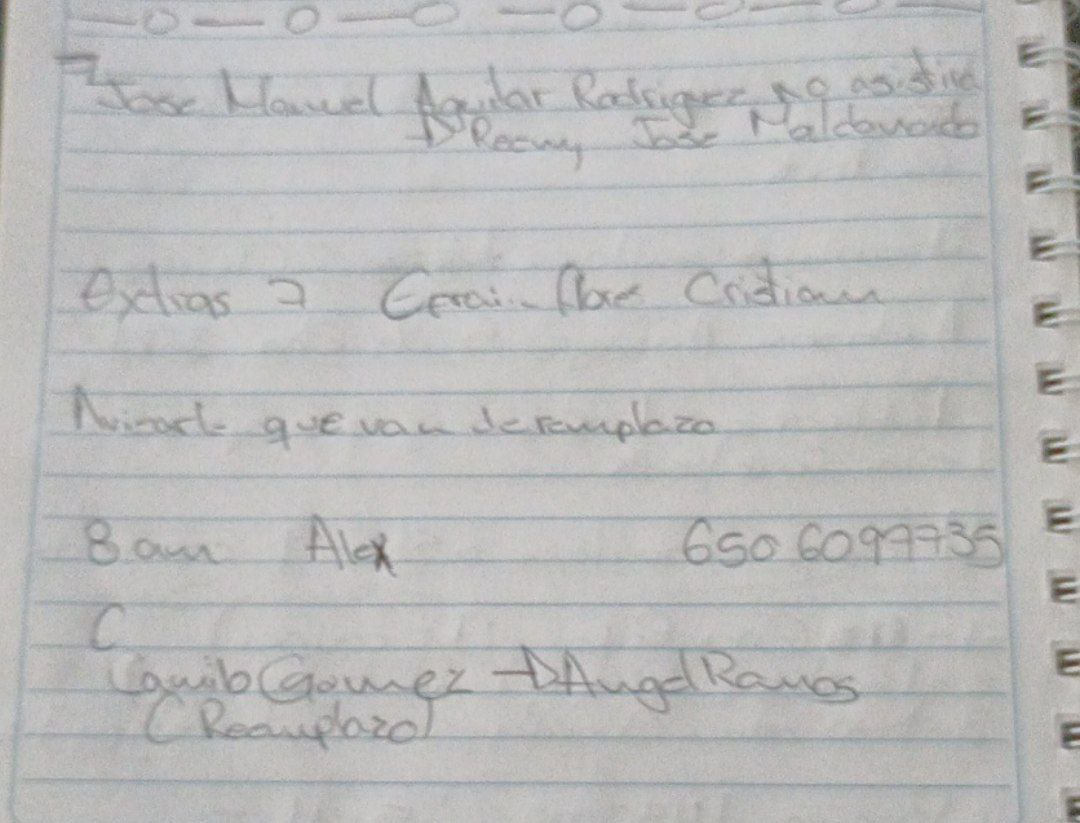 Jose Manuel Aguilar Rodriguez no asistira
Reemp Jose Maldonado
extras Efrain flores Cristian
que van de remplazo
8 am Alex 650 6099735
C
Gomez Angel Ramos
(Reemplazo)